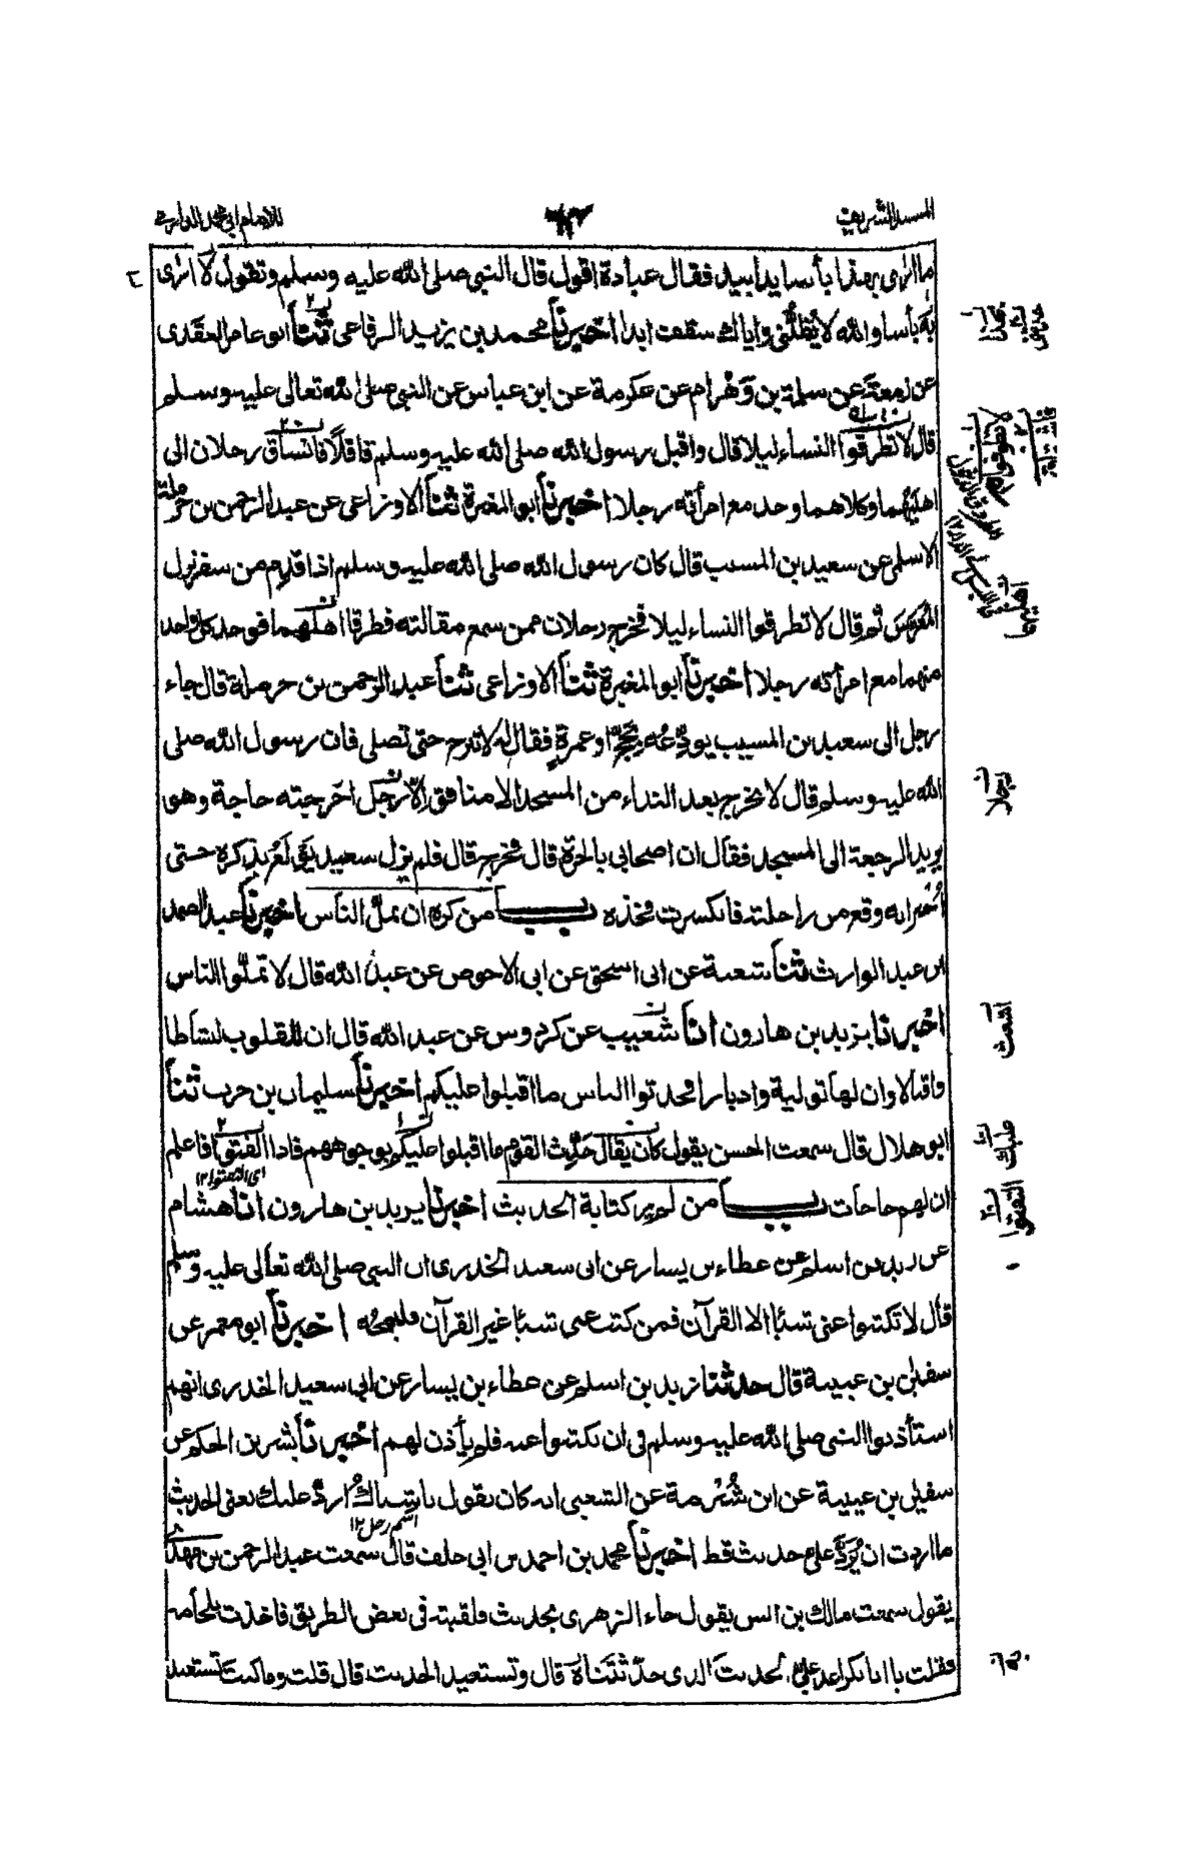 المسند الشريف
٦٣
للامام ابى محمد الدارمى
ما ارى بهذا بأسا يدا بيد فقال عبادة اقول قال النبى صلى الله عليه وسلم وتقول لا ارى
به بأسا والله لا يُظلّنى واياك سقف ابدا اخبرنا محمد بن يزيد الرفاعى ثنا ابو عامر العقدى
عن زمعة عن سلمة بن وَهْرام عن عكرمة عن ابن عباس عن النبى صلى الله تعالى عليه وسلم
قال لا تطرقوا النساء ليلا قال واقبل رسول الله صلى الله عليه وسلم قافلًا فانساق رجلان الى
اهليهما وكلاهما وجد مع امرأته رجلا اخبرنا ابو المغيرة ثنا الاوزاعى عن عبد الرحمن بن حرملة
الاسلمى عن سعيد بن المسيب قال كان رسول الله صلى الله عليه وسلم اذا قدم من سفر نزل
المُعرّسَ ثم قال لا تطرقوا النساء ليلا فخرج رجلان ممن سمع مقالته فطرقا اهلهما فوجد كل واحد
منهما مع امرأته رجلا اخبرنا ابو المغيرة ثنا الاوزاعى ثنا عبد الرحمن بن حرملة قال جاء
رجل الى سعيد بن المسيب يودّعُه بحجّ او عمرةٍ فقال له لا تبرح حتى تصلى فان رسول الله صلى
الله عليه وسلم قال لا يخرج بعد النداء من المسجد الا منافق الّا رجل اخرجته حاجة وهو
يريد الرجعة الى المسجد فقال ان اصحابى بالحرة قال فخرج قال فلم يزل سعيد يولع بذكره حتى
أُخبر انه وقع من راحلته فانكسرت فخذه باب من كره ان يملّ الناس اخبرنا عبد الصمد
بن عبد الوارث ثنا شعبة عن ابى اسحق عن ابى الاحوص عن عبد الله قال لا تملّوا الناس
اخبرنا يزيد بن هارون انا شعيب عن كردوس عن عبد الله قال ان للقلوب لنشاطا
واقبالا وان لها تولية وادبارا فحدثوا الناس ما اقبلوا عليكم اخبرنا سليمان بن حرب ثنا
ابو هلال قال سمعت الحسن يقول كان يقال حَدِّث القوم ما اقبلوا عليكم بوجوههم فاذا التفتوا فاعلم
اى التفتوا ١٢
ان لهم حاجات باب من لم ير كتابة الحديث اخبرنا يزيد بن هارون انا هشام
عن زيد بن اسلم عن عطاء بن يسار عن ابى سعيد الخدرى ان النبى صلى الله تعالى عليه وسلم
قال لا تكتبوا عنى شيئا الا القرآن فمن كتب عنى شيئا غير القرآن فليمحُه اخبرنا ابو معمر عن
سفيٰن بن عيينة قال حدثنا زيد بن اسلم عن عطاء بن يسار عن ابى سعيد الخدرى انهم
استأذنوا النبى صلى الله عليه وسلم فى ان يكتبوا عنه فلم يأذن لهم اخبرنا بشر بن الحكم عن
سفيٰن بن عيينة عن ابن شُبْرمة عن الشعبى انه كان يقول يا شباكُ اردّ عليك يعنى الحديث
اسم رجل ١٢
ما اردت ان يُرَدَّ علىّ حديث قط اخبرنا محمد بن احمد بن ابى خلف قال سمعت عبد الرحمن بن مهدى
يقول سمعت مالك بن انس يقول جاء الزهرى بحديث فلقيته فى بعض الطريق فاخذت بلجامه
فقلت يا ابا بكر اعد علىّ الحديث الذى حدّثتَنا به قال وتستعيد الحديث قال قلت وما كنت تستعيد
اشعث
عليك
التفتوا